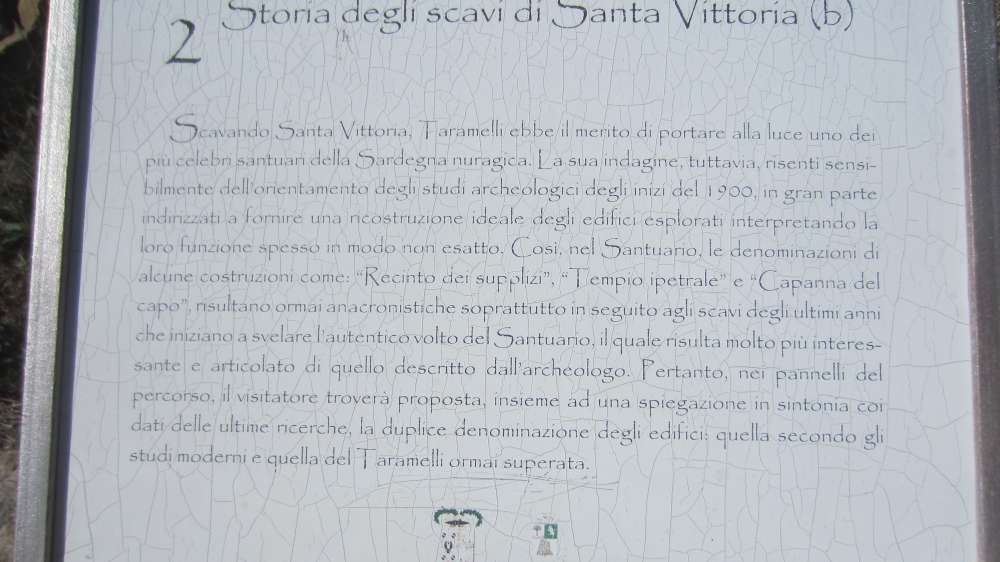 2 Storia degli scavi di Santa Vittoria (b)
Scavando Santa Vittoria, Taramelli ebbe il merito di portare alla luce uno dei
più celebri santuari della Sardegna nuragica. La sua indagine, tuttavia, risentì sensi-
bilmente dell'orientamento degli studi archeologici degli inizi del 1900, in gran parte
indirizzati a fornire una ricostruzione ideale degli edifici esplorati interpretando la
loro funzione spesso in modo non esatto. Così, nel Santuario, le denominazioni di
alcune costruzioni come: "Recinto dei supplizi", "Tempio ipetrale" e "Capanna del
capo", risultano ormai anacronistiche soprattutto in seguito agli scavi degli ultimi anni
che iniziano a svelare l'autentico volto del Santuario, il quale risulta molto più interes-
sante e articolato di quello descritto dall'archeologo. Pertanto, nei pannelli del
percorso, il visitatore troverà proposta, insieme ad una spiegazione in sintonia coi
dati delle ultime ricerche, la duplice denominazione degli edifici: quella secondo gli
studi moderni e quella del Taramelli ormai superata.